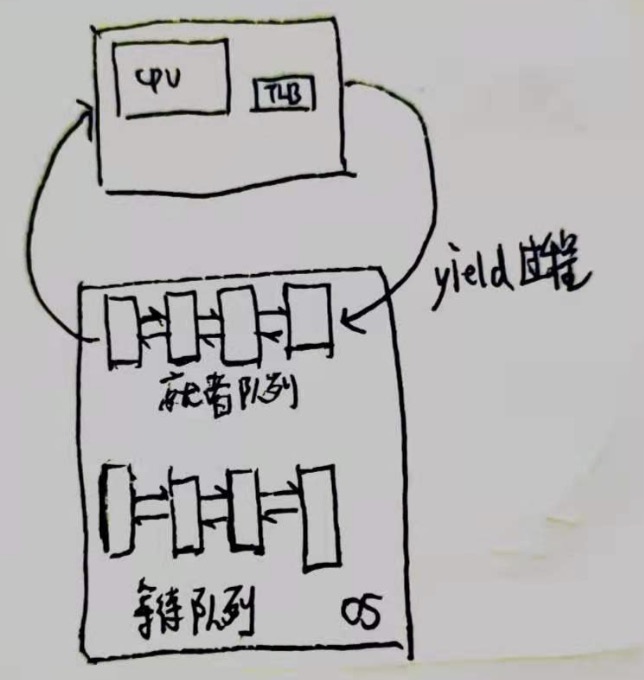 CPU
TLB
yield过程
就者队列
等待队列
OS